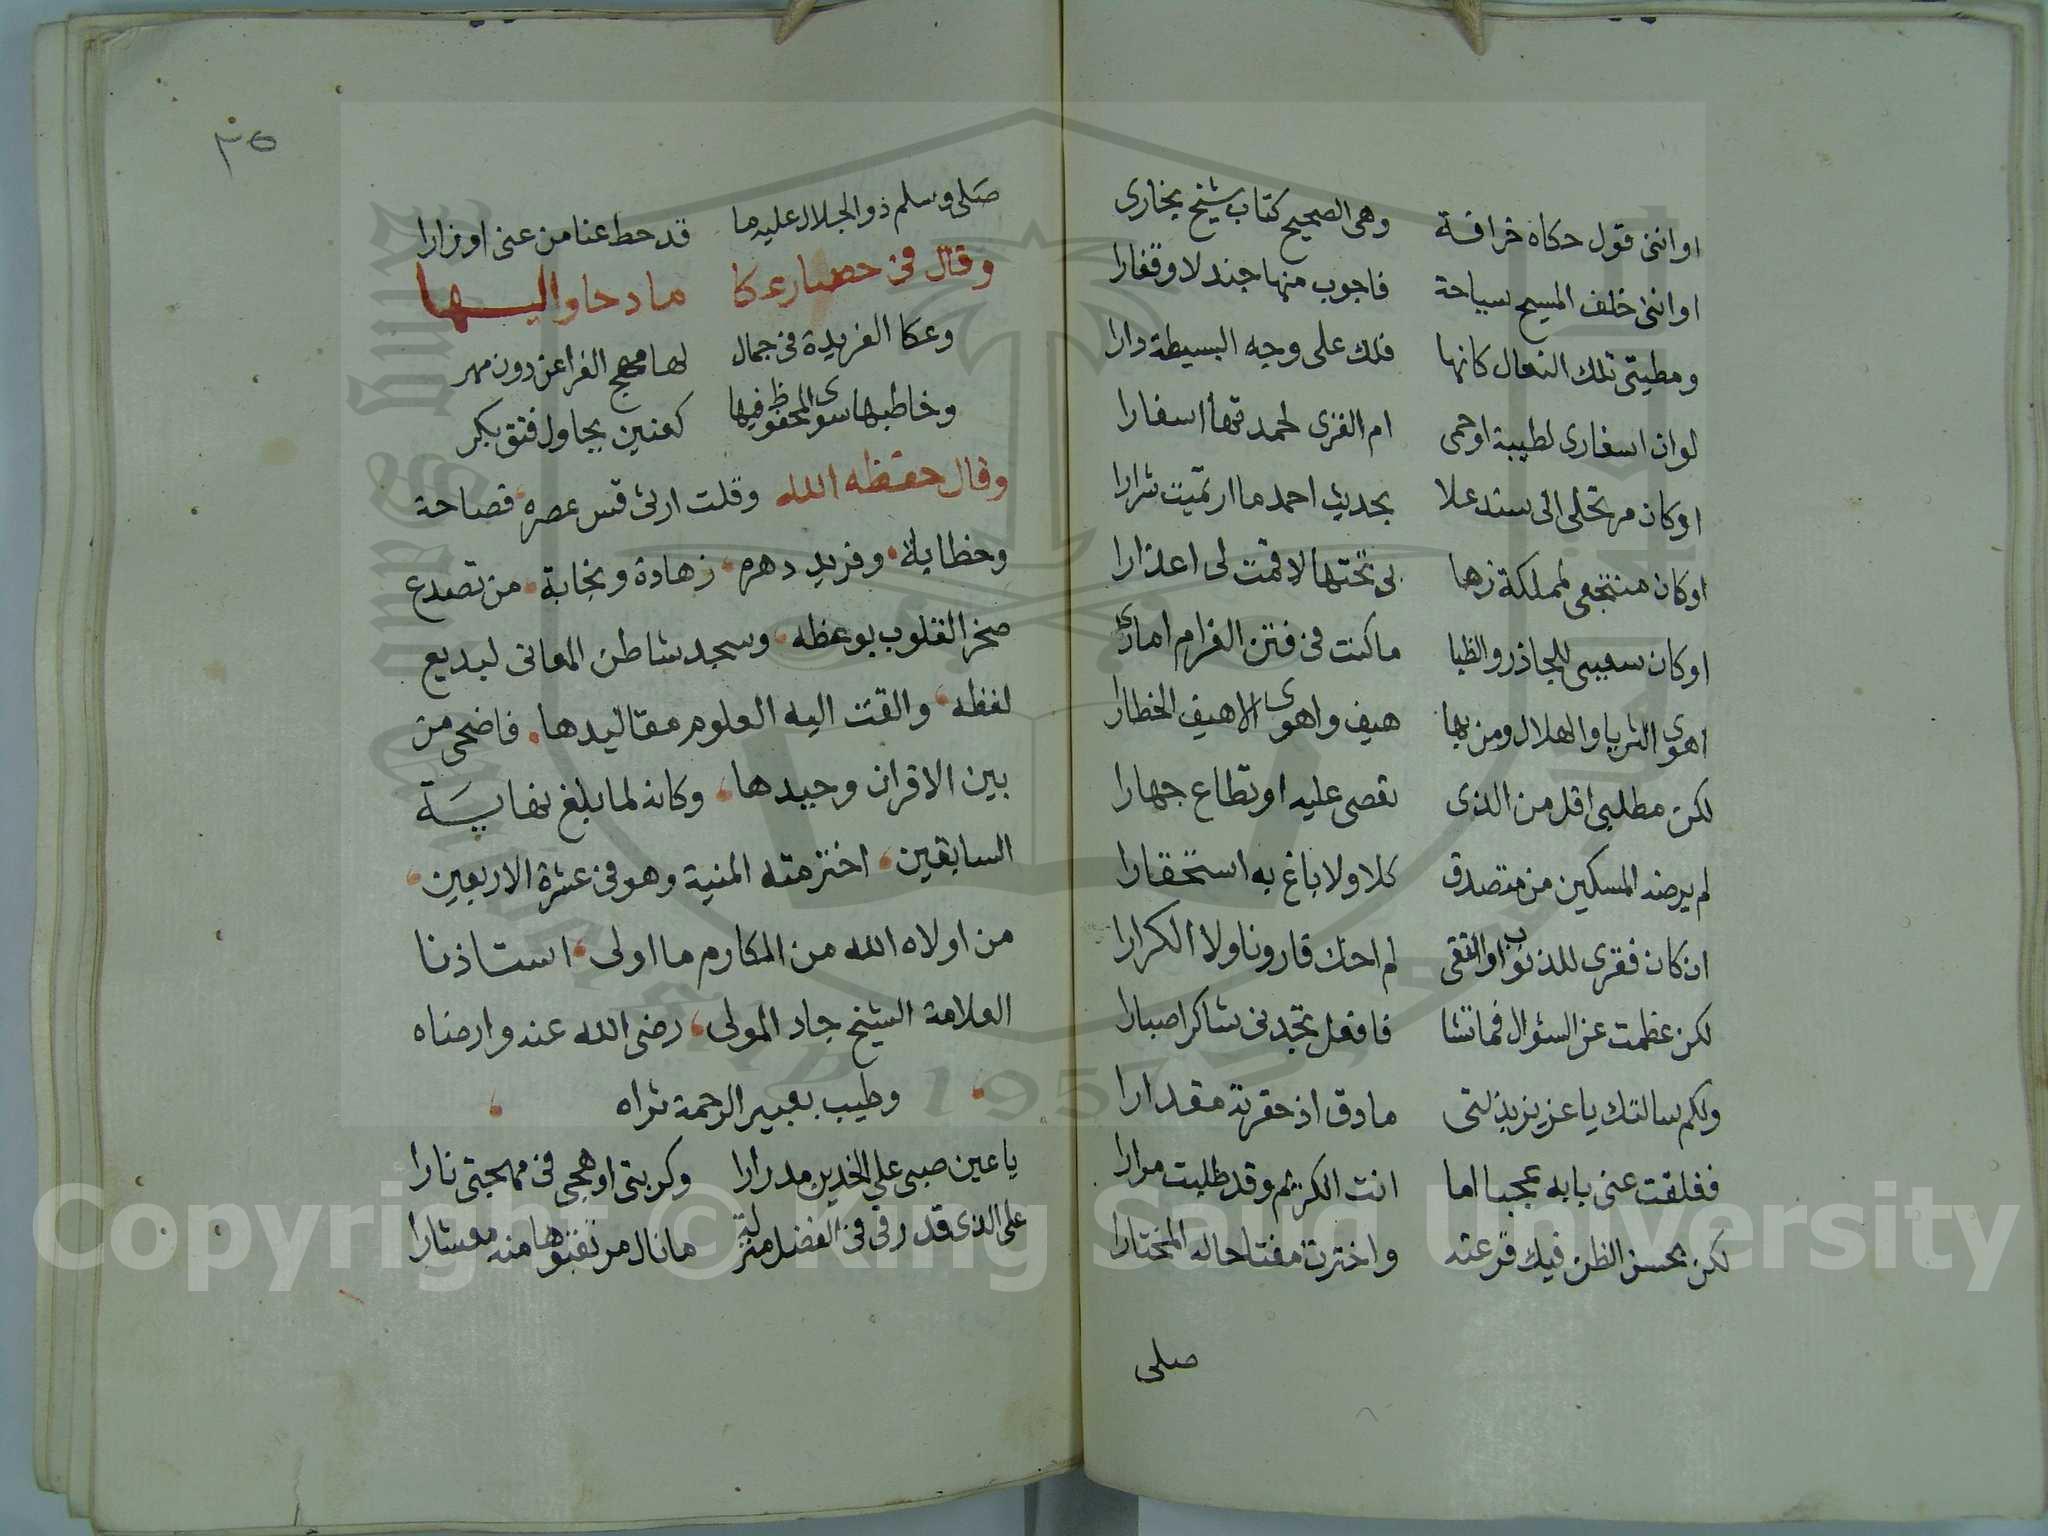 او اننى قول حكاه خرافة وهى الصحيح كتاب شيخ بخارى
او اننى خلف المسيح سياحة فاجوب منها جندلا وقفارا
ومطيتى تلك النعال كانها فلك على وجه البسيطة دارا
لو ان اسفارى لطيبة او حمى ام القرى لحمدتها اسفارا
او كان مرتحلى الى سند علا بحديث احمد ما ارتميت شرارا
او كان منتجعى لمملكة زها لى تختها لاقمت لى اعذارا
او كان سعيى للجاذر والظبا ما كنت فى فتن الغرام امارى
اهوى الثريا والهلال ومن بها هيف واهوى الاهيف الخطارا
لكن مطلبى اقل من الذى تقصى عليه او تطاع جهارا
لم يرضه المسكين من متصدق كلا ولا باغ به استحقارا
ان كان فقرى للذنوب او التقى لم احك قارونا ولا الكرارا
لكن عظمت عن السؤال فما تشا فافعل تجدنى شاكرا صبارا
ولكم سالتك يا عزيز بذلتى ما دق اذ حقرته مقدارا
ففلقت عنى بابه عجبا اما انت الكريم وقد طلبت مرارا
لكن بحسن الظن فيك قرعته واخترت مفتاحا له المختارا
صلى
٣٥
صلى وسلم ذو الجلال عليه ما قد حط عنا من عنى اوزارا
وقال فى حصار عكا مادحا واليها
وعكا الفريدة فى جمال لها مهج الفراعن دون مهر
وخاطبها سوى المحفوظ فيها كعنين يحاول فتق بكر
وقال حفظه الله وقلت ارثى قس عصره فصاحة
وخطابة وفريد دهره زهادة ونجابة من تصدع
صخر القلوب بوعظه وسجد شاطن المعانى لبديع
لفظه والقت اليه العلوم مقاليدها فاضحى من
بين الاقران وحيدها وكانه لما بلغ نهاية
السابقين اخترمته المنية وهو فى عشرة الاربعين
من اولاه الله من المكارم ما اولى استاذنا
العلامة الشيخ جاد المولى رضى الله عنه وارضاه
وطيب بعبير الرحمة ثراه
يا عين صبى على الخدين مدرارا وكربتى اوهجى فى مهجتى نارا
على الذى قد رقى فى الفضل منزلة ما نال مرتقبوها منه معشارا
Copyright © King Saud University
1957